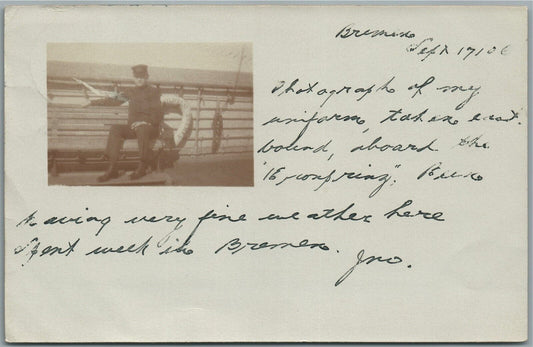 Bremen
Sept 17/06
Photograph of my
uniform, taken east-
bound, aboard the
Been
having very fine weather here
Spent week in Bremen.
Jno.